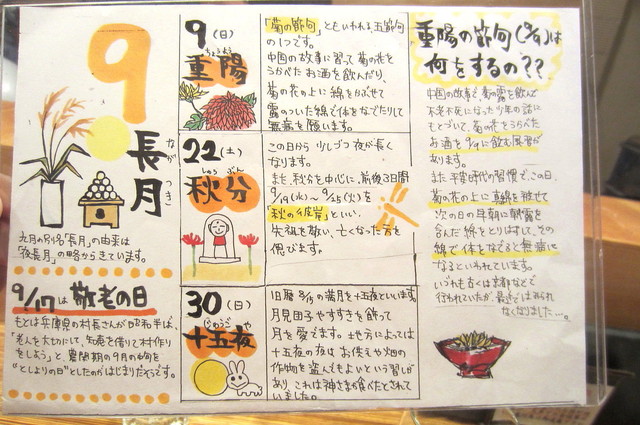 9
長月
なが つき
九月の別名「長月」の由来は
「夜長月」の略からきています。
9/17は敬老の日
もとは兵庫県の村長さんが昭和半ば、
「老人を大切にして、知恵を借りて村作り
をしよう」と、農閑期の9月の中旬を
"としよりの日"としたのがはじまりだそうです。
9(日)
ちょうよう
重陽
「菊の節句」ともいわれる、五節句
の1つです。
中国の故事に習って菊の花を
うかべたお酒を飲んだり、
菊の花の上に綿をかぶせて
露のついた綿で体をなでたりして
無病を願います。
22(土)
しゅう ぶん
秋分
この日から少しづつ夜が長く
なります。
また、秋分を中心に、前後3日間
9/19(水)~9/25(火)を
「秋の彼岸」といい、
先祖を敬い、亡くなった方を
偲びます。
30(日)
じゅうご や
十五夜
旧暦8/15の満月を十五夜といいます。
月見団子やすすきを飾って
月を愛でます。土地方によっては
十五夜の夜はお供えや畑の
作物を盗んでもよいという習しがあ
り、これは神さまが食べたとされて
いました。
重陽の節句(9/9)は
何をするの??
中国の故事で、菊の露を飲んで
不老不死になった少年の話に
もとづいて、菊の花をうらべた
お酒を9/9に飲む風習が
あります。
また平安時代の習慣で、この日、
菊の花の上に真綿を被せて
次の日の早朝に朝露を
含んだ綿をとりはずして、その
綿で体をなでると無病に
なるといわれています。
いづれも古くは京都などで
行われていたが、最近ではみられ
なくなりました…。